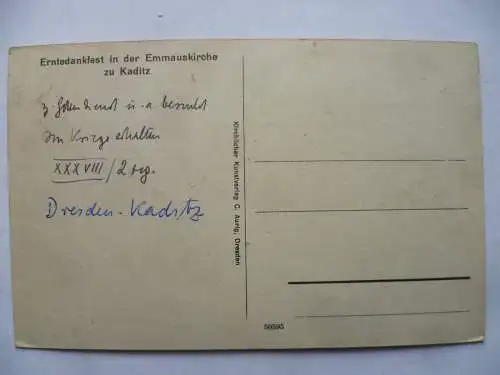 Erntedankfest in der Emmauskirche
zu Kaditz
z. Gottesdienst u. a besucht
im Kriege erhalten
XXXVIII/2
Dresden-Kaditz
Kirchlicher Kunstverlag C. Aurig, Dresden
56595